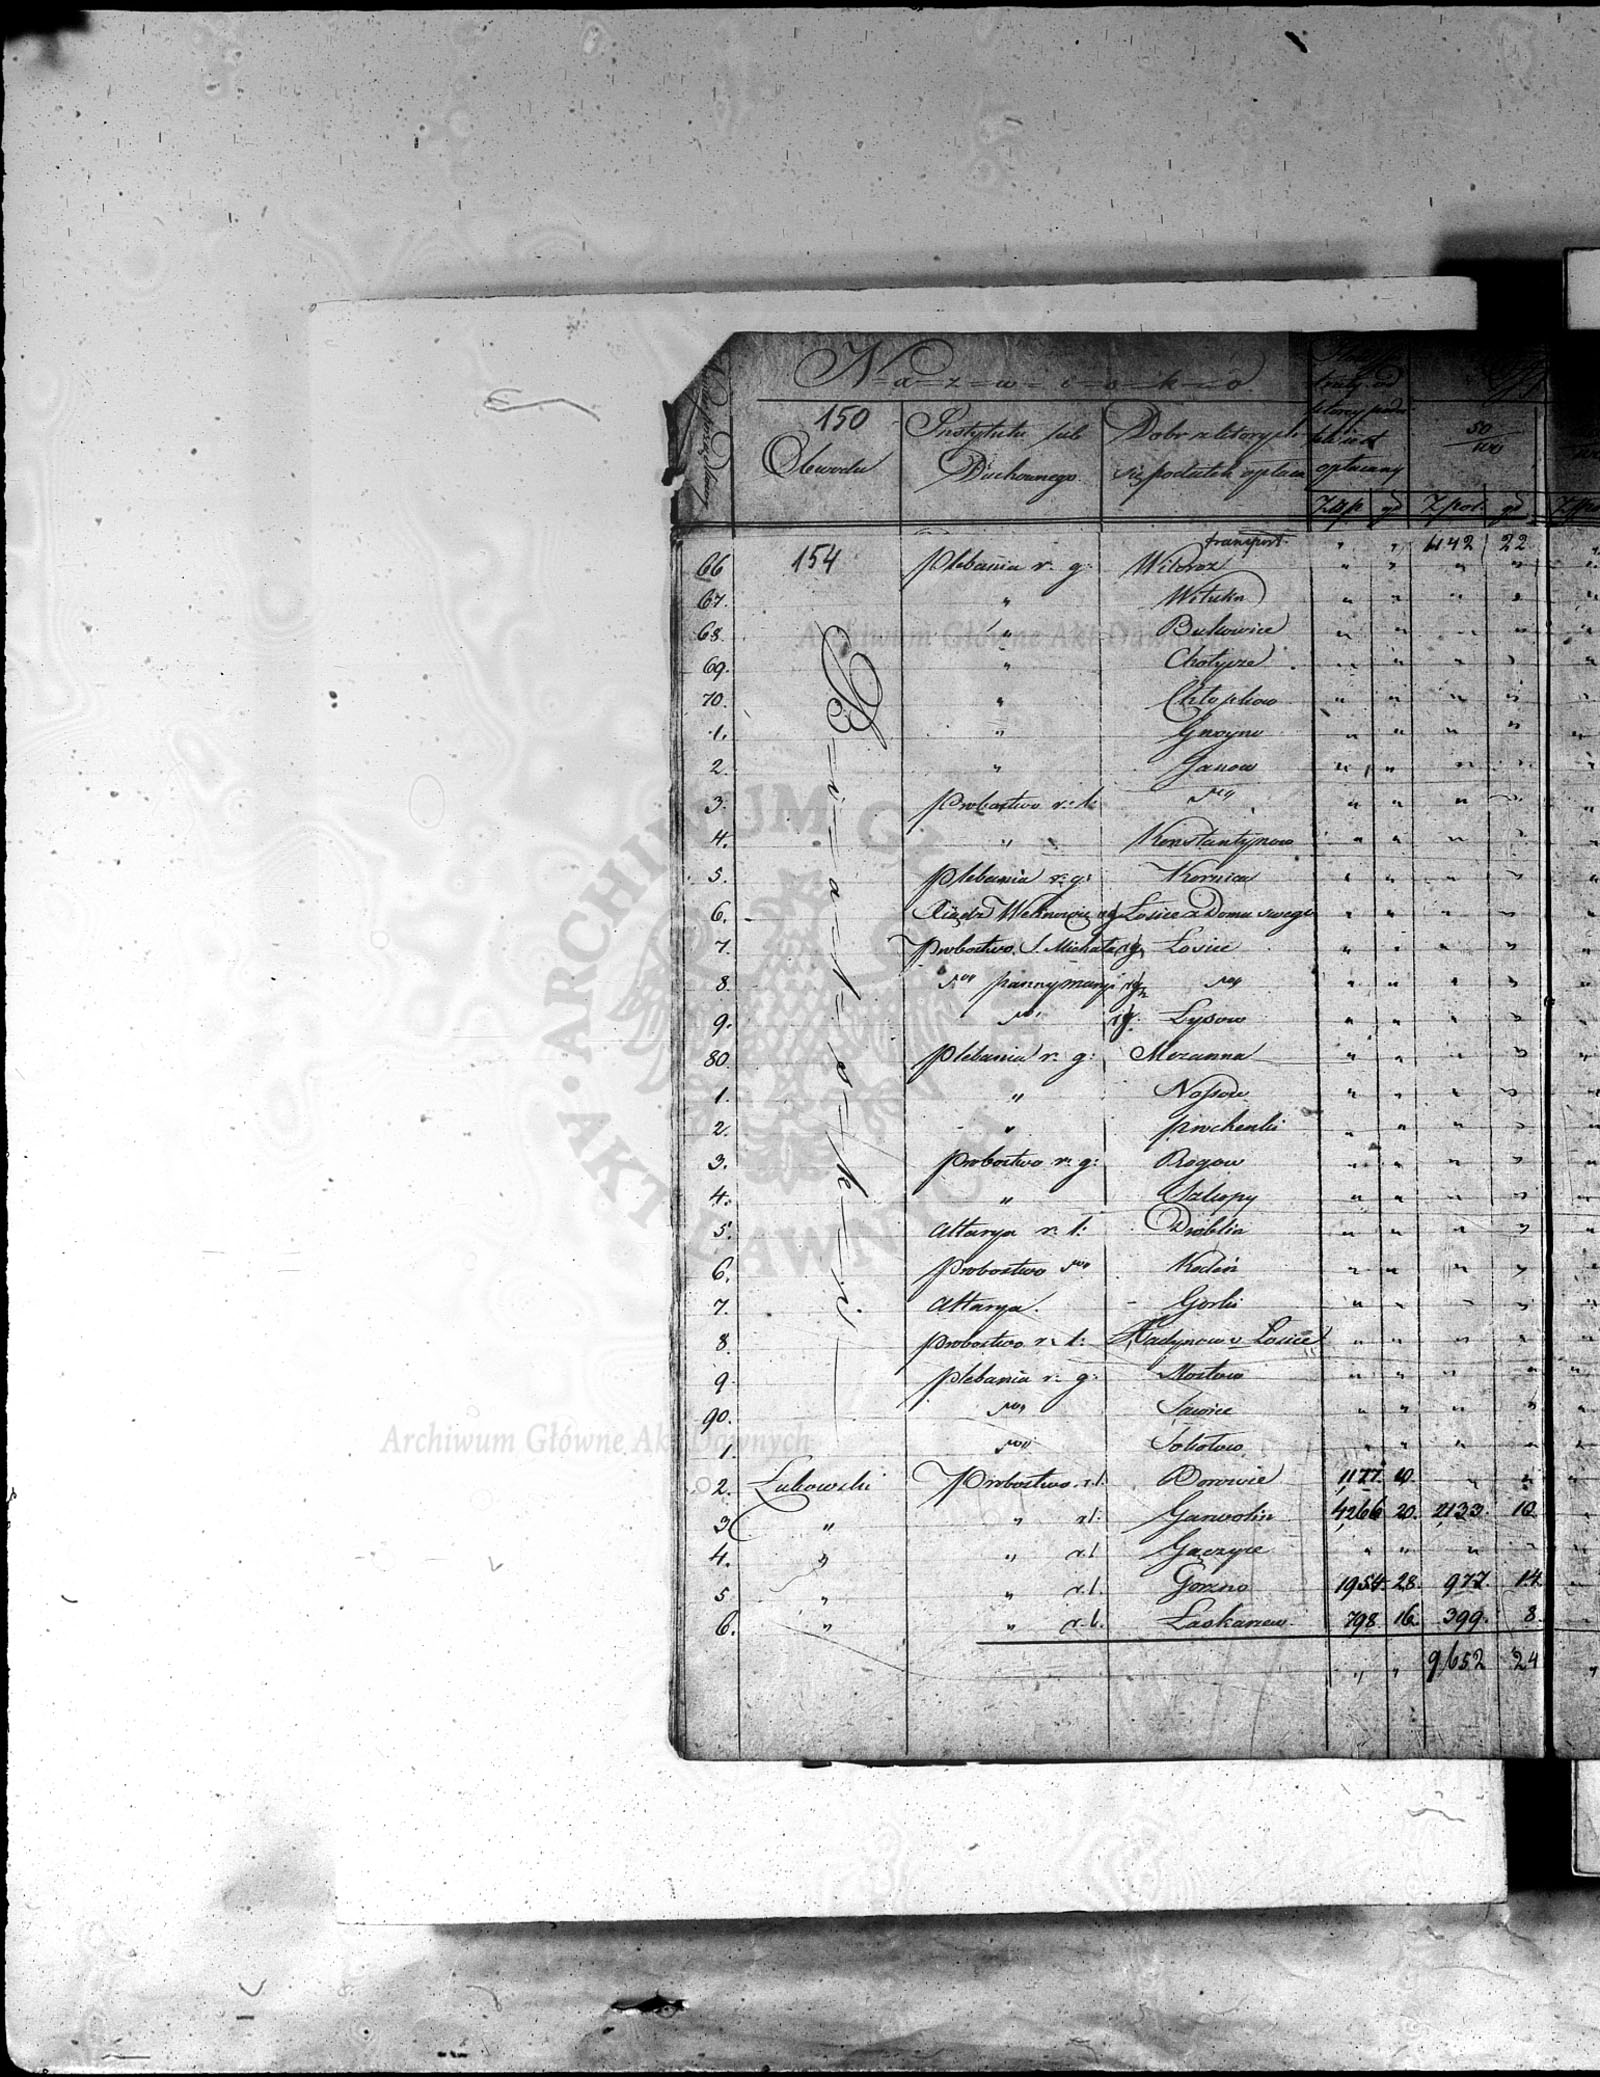 N=a=z=w=i=s=k=o
150
Obwodu
Instytutu lub
Duchownego
Dobr z ktorych
się podatek opłaca
ktory poda-
tek iest
opłacany
50
100
Złp gr Zpol. gr
transport " " 1142 22
66 154 Plebania r. g: Witoroz " " " "
67. " Witulin " " " "
68. " Bukowice " " " "
69. " Chotycze " " " "
70. " Chłopkow " " " "
1. " Gnoyno " " " "
2. " Janow " " " "
3. Probostwo r: ł: " " " "
4. " Konstantynow " " " "
5. Plebania r: g: Kornica " " " "
6. Xiądz r g Łosice z Domu swego " " " "
7. Probostwo S. Michała r g Łosice " " " "
8. Panny Maryi r g " " " "
9. r g. Łysow " " " "
80. Plebania r. g: Mszanna " " " "
1. " Nossow " " " "
2. " Prochenki " " " "
3. Probostwo r: g: Rogow " " " "
4. " Szkopy " " " "
5. Altarya r. ł: Droblin " " " "
6. Probostwo Kodeń " " " "
7. Altarya. Gorki " " " "
8. Probostwo r. ł: Hadynow v Łosice " " " "
9. Plebania r. g: Mostow " " " "
90. Sawice " " " "
1. " " " "
B=i=a=l=s=k=i
2. Łukowski Probostwo r.ł. Borowie 1177. 10. " "
3 " " rł. Garwolin 4266 20. 2133. 10
4. " " r.ł " " " "
5 " " r.ł. Gorzno 1954. 28. 977. 14
6. " " r.ł. Łaskarzew 798. 16. 399. 8.
" " 9652 24
Archiwum Główne Akt Dawnych
ARCHIWUM GŁÓWNE AKT DAWNYCH
Archiwum Główne Akt Dawnych